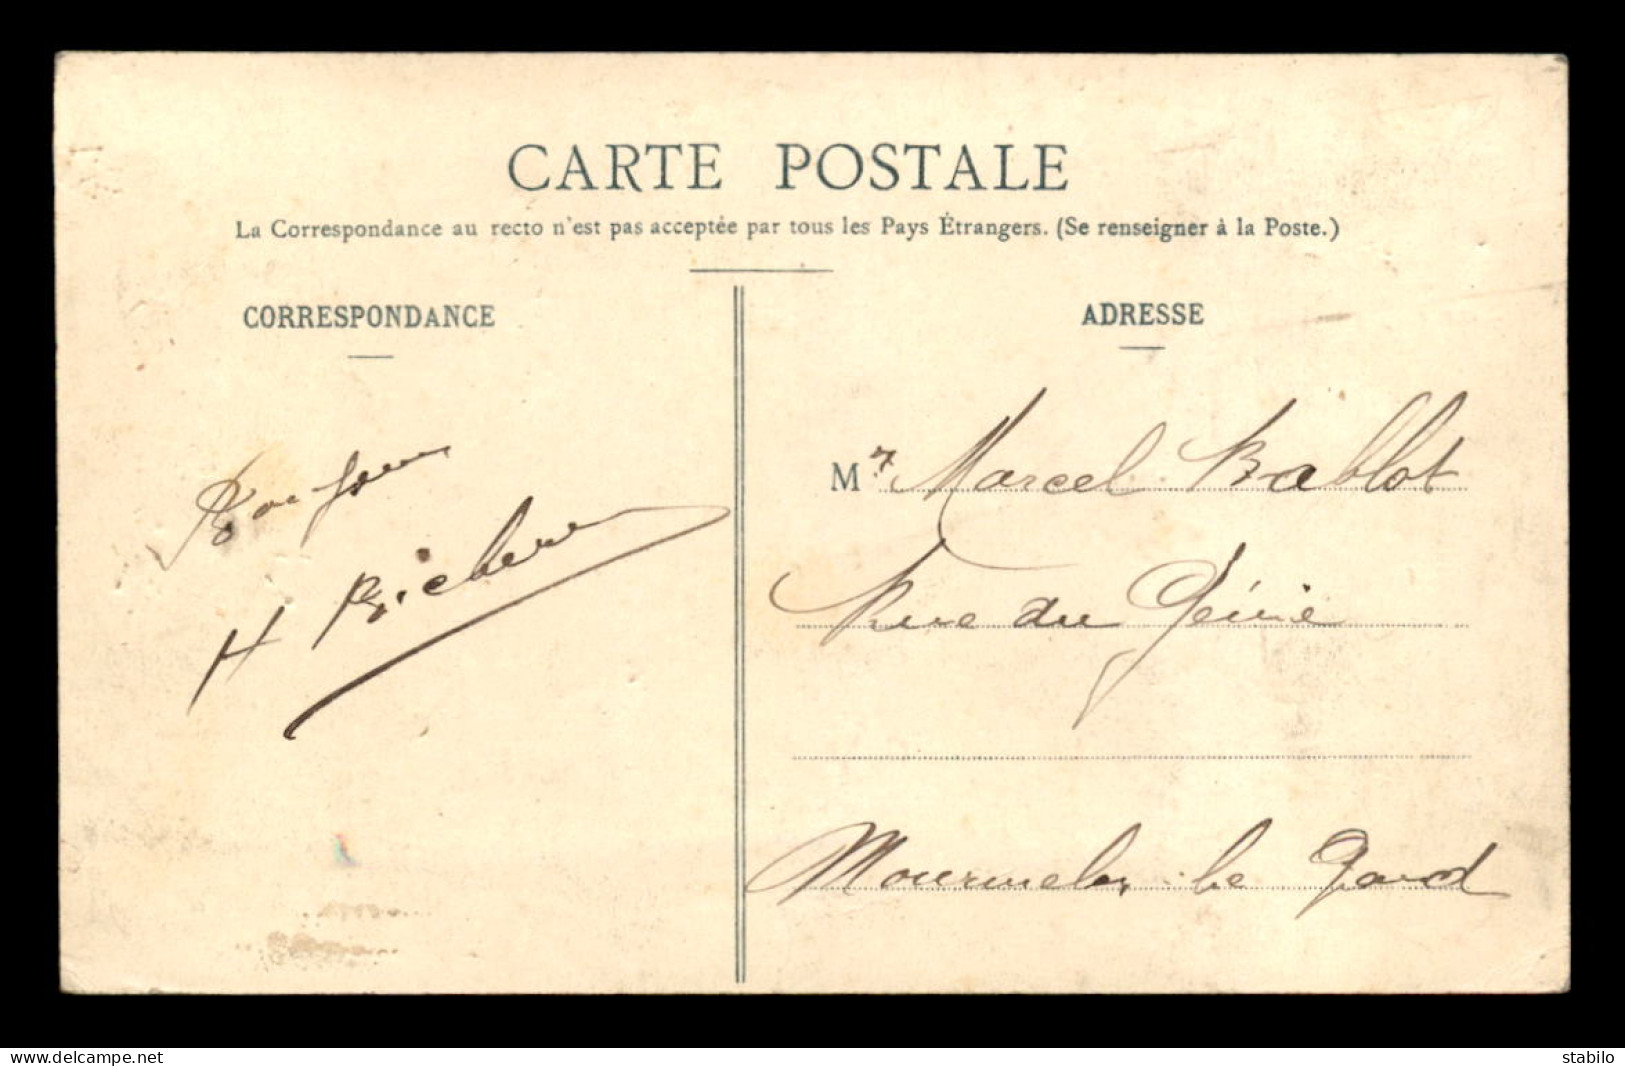 CARTE POSTALE
La Correspondance au recto n'est pas acceptée par tous les Pays Étrangers. (Se renseigner à la Poste.)
CORRESPONDANCE
ADRESSE
Bonjour
H
Mr Marcel Bablot
Rue du Génie
Mourmelon le Grand
www.delcampe.net
stabilo